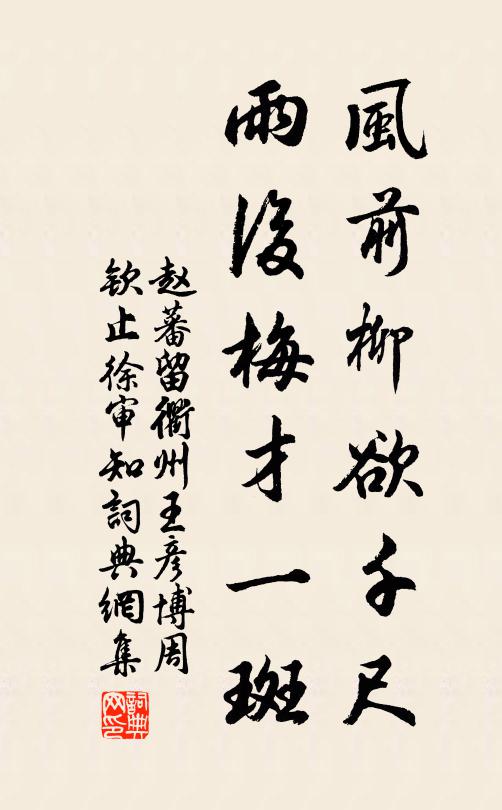 風前柳欲千尺
雨後梅才一斑
赵蕃留衢州王彦博周
欽止徐审知詞典網集
詞典网印